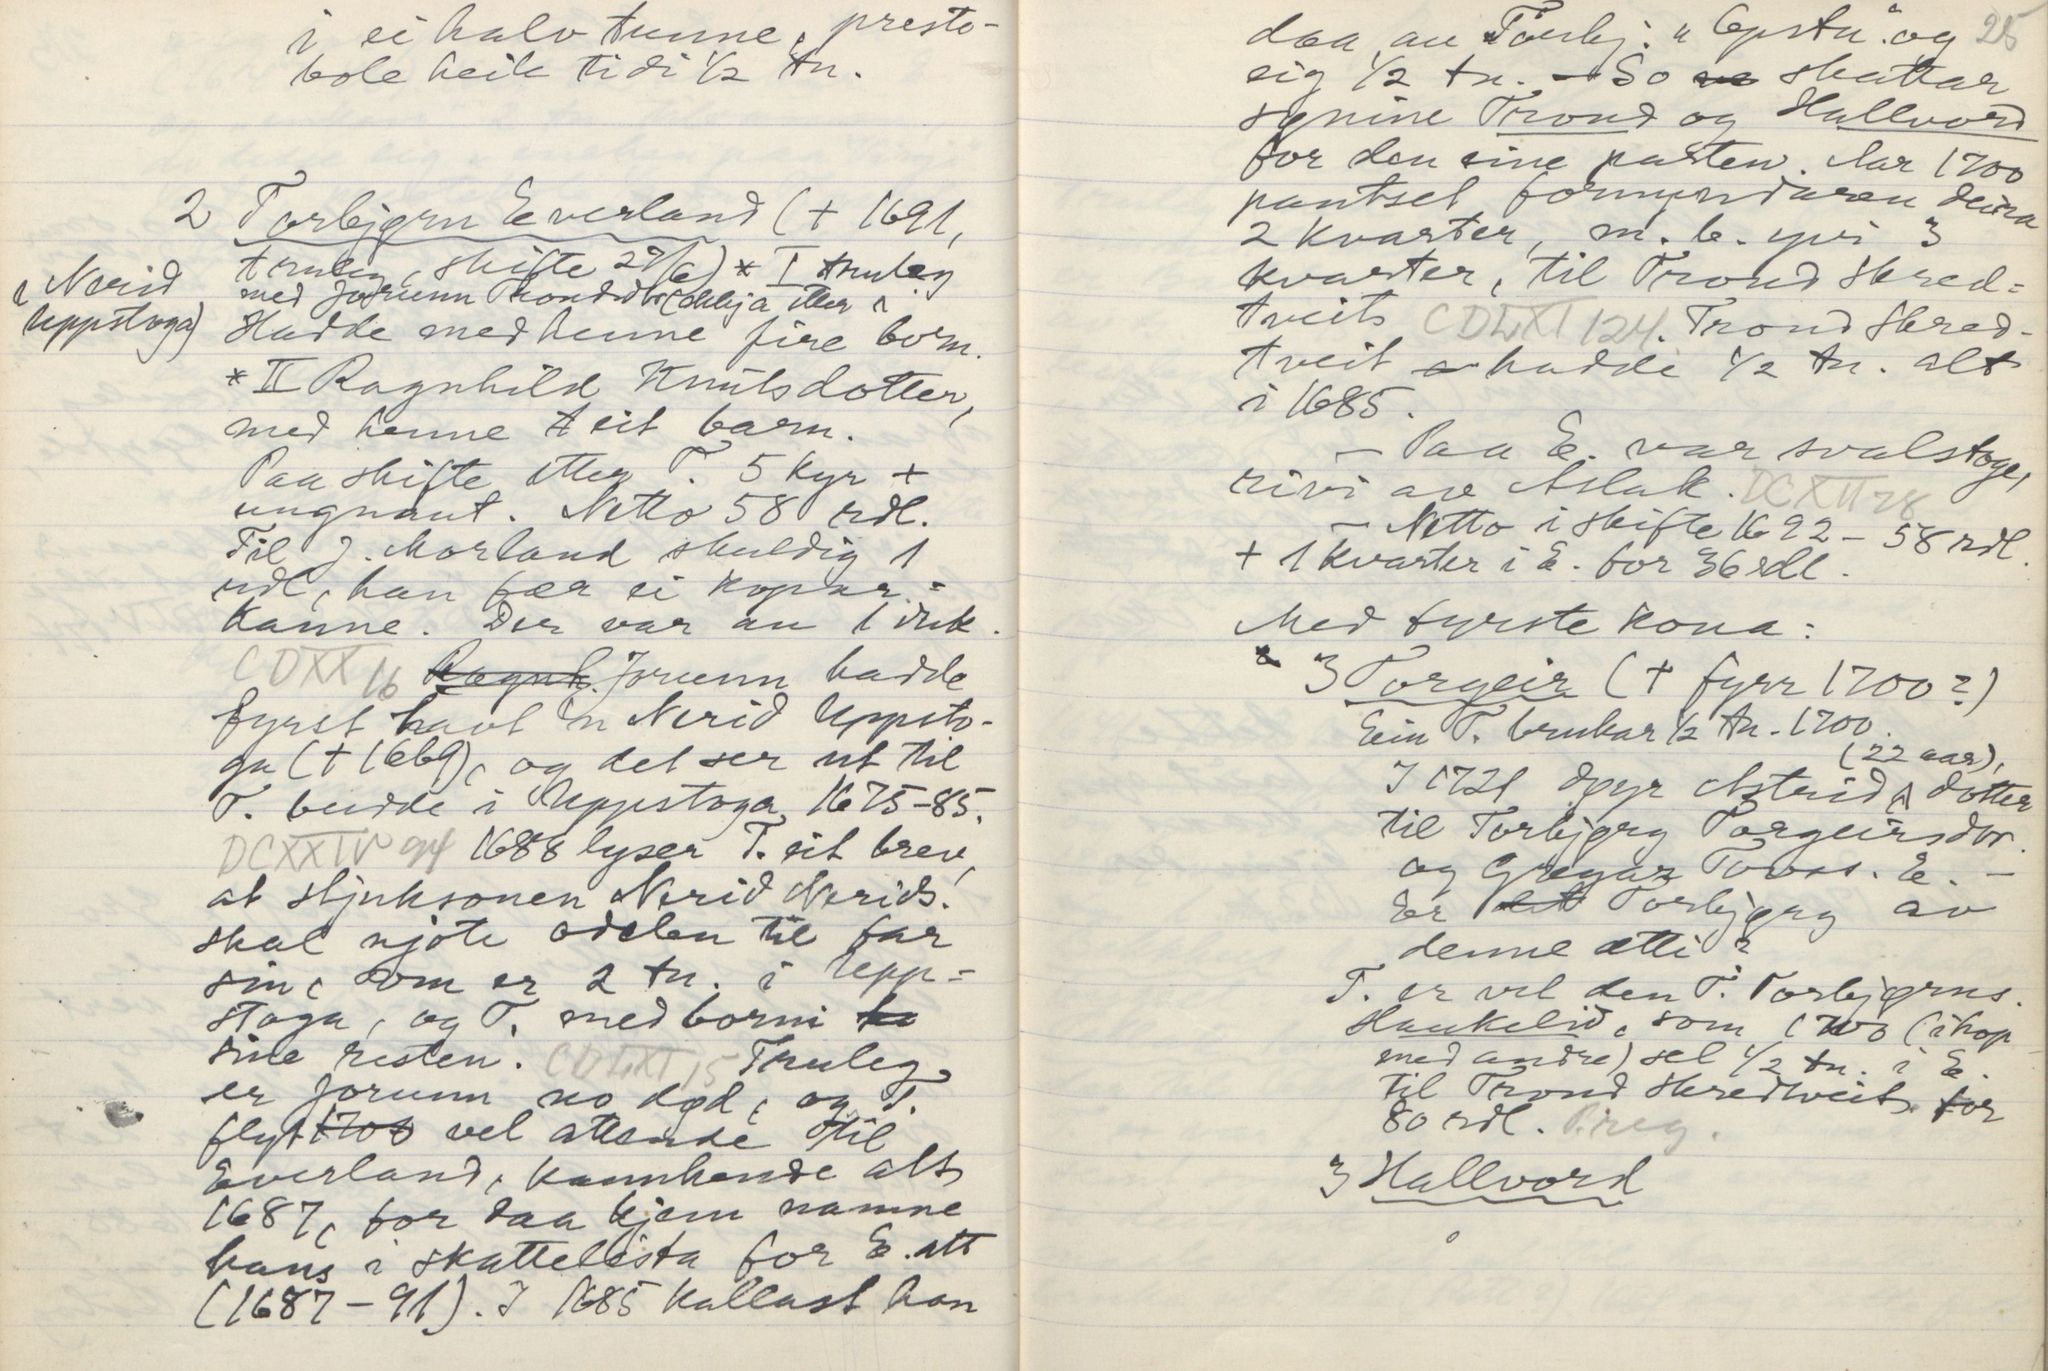 i ei halv tunne, presto-
bole heile tidi 1/2 tn.
2 Torbjørn Everland († 1691,
truleg, skifte 29/6) * I truleg
med Jorunn Trondsdtr (ekkja etter
(Nerid
Uppstoga)
Hadde med henne fire born.
* II Ragnhild Knutsdotter,
med henne eit barn.
Paa skifte etter T. 5 kyr +
ungnaut. Netto 58 rdl.
Til J. Morland skuldig 1
rdl, han fær ei kopar-
kanne. Der var au 1 duk.
CDXX 16 Ragnh. Jorunn hadde
fyrst havt 'n Nerid Uppsto-
ga († 1669), og det ser ut til
T. budde i Uppstoga 1675-85.
DCXXIV 94 1688 lyser T. eit brev,
at stjuksonen Nerid Nerids.
skal njote odelen til far
sin, som er 2 tn. i Upp-
stoga, og T. med borni
sine resten. CDLXI 15 Truleg
er Jorunn no død, og T.
flyt 1700 vel attende til
Everland, kannhende alt
1687, for daa kjem namne
hans i skattelista for E. att
(1687-91). I 1685 kallast han
25
daa au Torbj. "Upstu" og
eig 1/2 tn. - So skattar
synine Trond og Hallvord
for den eine parten. Aar 1700
pantset formyndaren deira
2 kvarter, m. b. yvi 3
kvarter, til Trond Skred-
tveit CDLXI 124. Trond Skred-
tveit hadde 1/2 tn. alt
i 1685.
- Paa E. var svalstoge,
rivi av Aslak. DCXII 28
- Netto i skifte 1692 - 58 rdl.
+ 1 kvarter i E. for 36 rdl.
Med fyrste kona:
3 Torgeir († fyrr 1700?)
Ein T. brukar 1/2 tn. 1700.
I 1721 døyr Astrid (22 aar), dotter
til Torbjørg Torgeirsdtr.
og Gregar Tovss. E. -
Er Torbjørg av
denne ætti?
T. er vel den T. Torbjørns.
Haukelid, som 1700 (ihop
med andre) sel 1/2 tn. i E.
til Trond Skredtveit for
80 rdl. P.reg.
3 Hallvord